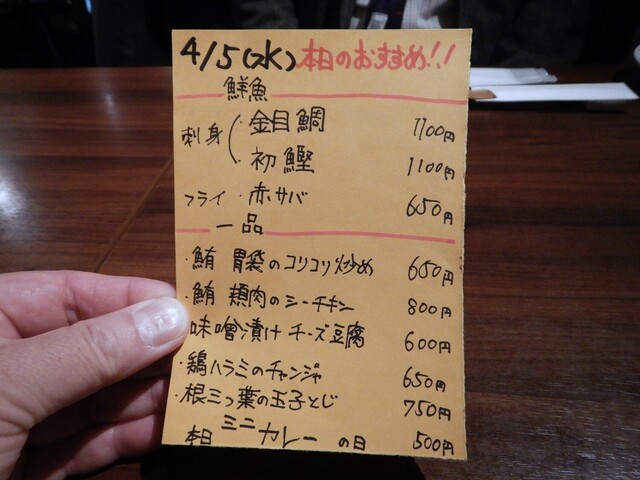 4/5(水) 本日のおすすめ!!
鮮魚
刺身 ・金目鯛 1100円
・初鰹 1100円
フライ ・赤サバ 650円
一品
・鮪 胃袋のコリコリ炒め 650円
・鮪 頬肉のシーチキン 800円
味噌漬けチーズ豆腐 600円
・鶏ハラミのチャンジャ 650円
・根三つ葉の玉子とじ 750円
本日 ミニカレーの日 500円